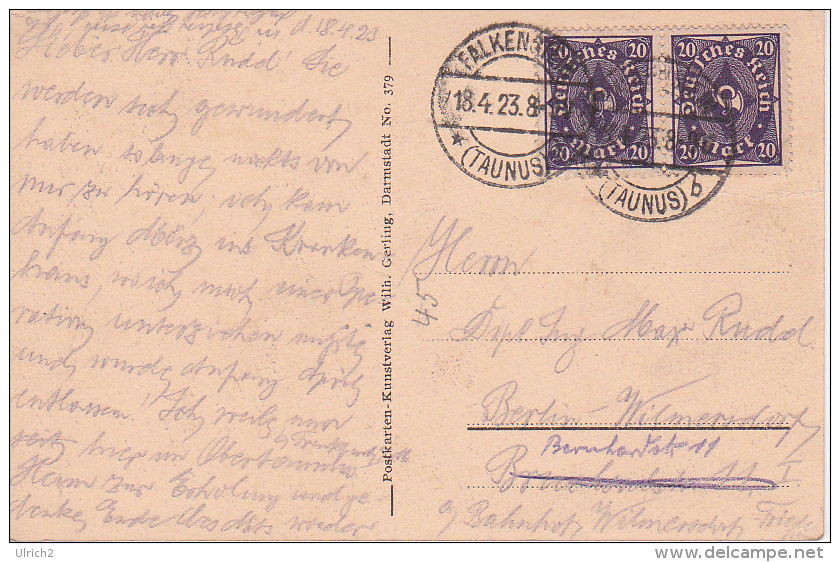 in d. 18.4.23
Lieber Herr Rudd! Sie
werden sich gewundert
haben so lange nichts von
mir zu hören, ich kam
Anfang März ins Kranken
haus, mich einer Ope
ration unterziehen mußte
und wurde Anfang April
entlassen. Ich weile nun
hier im Obertaunus
Heim zur Erholung und ge
denke Ende des Mts wieder
Postkarten-Kunstverlag Wilh. Gerling, Darmstadt No. 379
FALKENSTEIN
18.4.23.8-
(TAUNUS)
(TAUNUS) b
20 Deutsches Reich 20
20 Mark 20
20 Deutsches Reich 20
20 Mark 20
45
Herrn
Dipl Ing Max Rudd
Berlin-Wilmersdorf
Bernhardstr 11
a/ Bahnhof Wilmersdorf-Fried
Ulrich2
www.delcampe.net